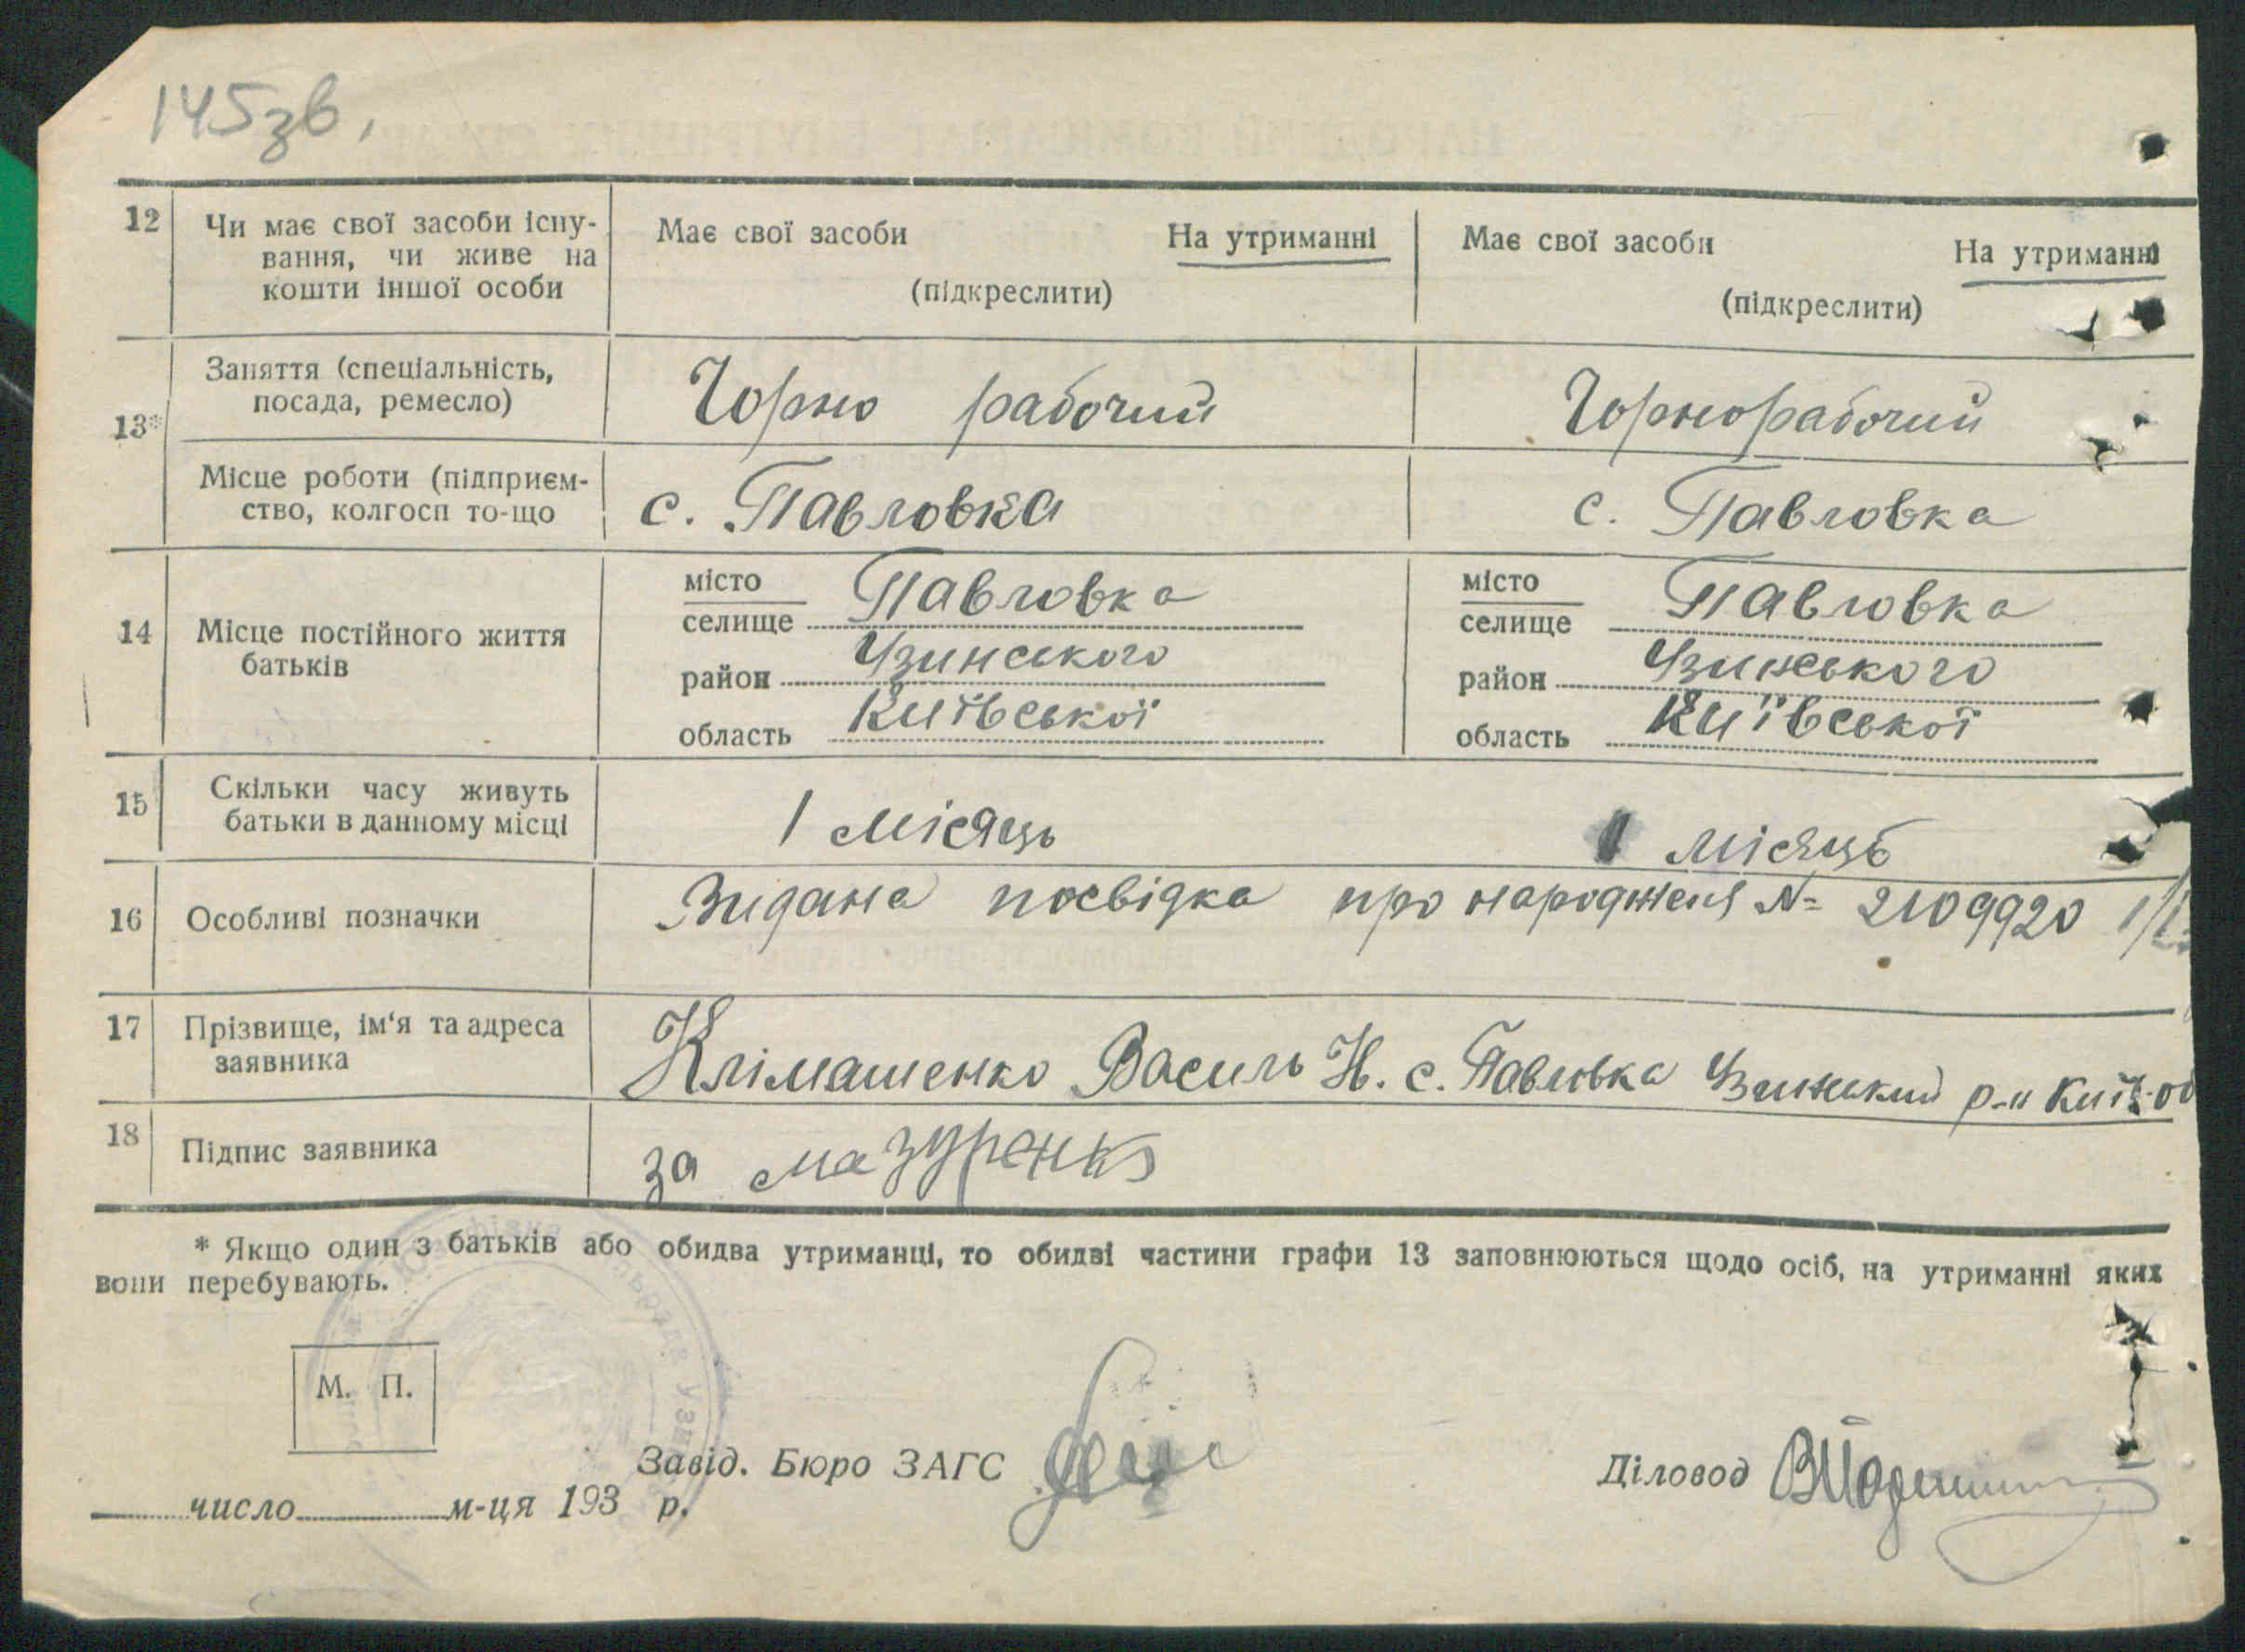 145зв.
12 Чи має свої засоби існу- Має свої засоби На утриманні Має свої засоби На утриманні
вання, чи живе на
кошти іншої особи (підкреслити) (підкреслити)
Заняття (спеціальність,
посада, ремесло) Чорно рабочий Чорнорабочий
13*
Місце роботи (підприєм-
ство, колгосп то-що с. Павловка с. Павловка
місто Павловка місто Павловка
селище селище
14 Місце постійного життя
батьків
район Узинського район Узинського
область Київської область Київської
15 Скільки часу живуть
батьки в данному місці 1 місяць 1 місяць
16 Особливі позначки Видана посвідка про народженя № 2109920
17 Прізвище, ім‘я та адреса
заявника Клімашенко Василь Н. с. Павловка Узинський р-н Київ. об
18 Підпис заявника за мазуренко
* Якщо один з батьків або обидва утриманці, то обидві частини графи 13 заповнюються щодо осіб, на утриманні яких
вони перебувають.
М. П.
Завід. Бюро ЗАГС
Діловод
число м-ця 193 р.